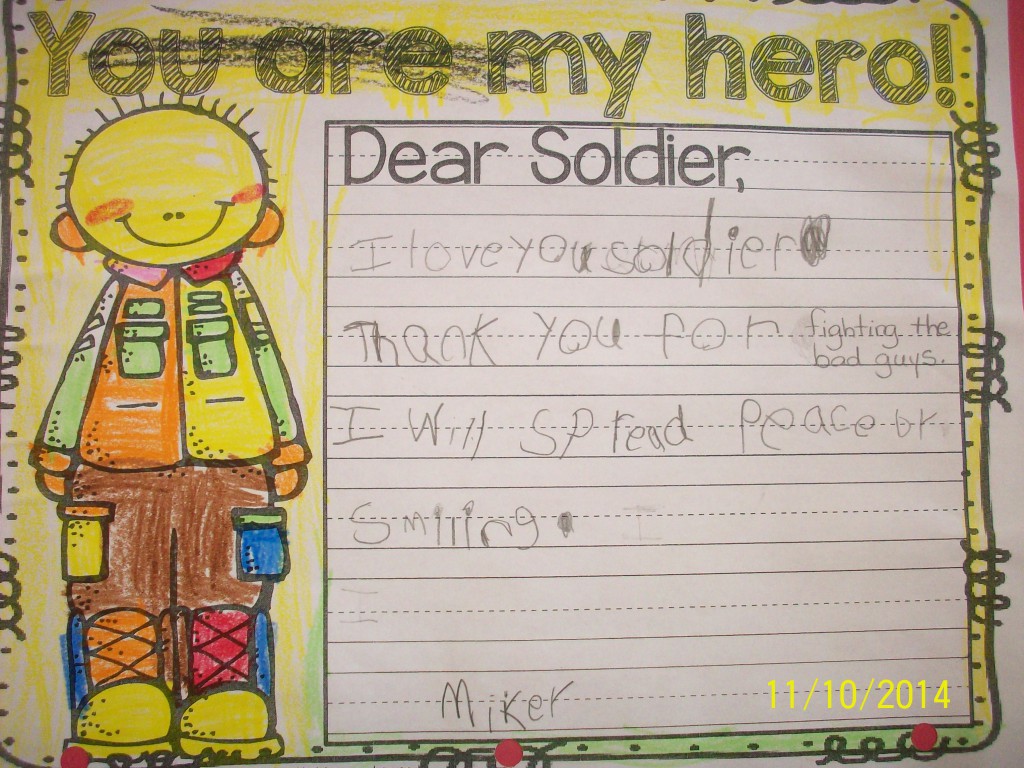 You are my hero!
Dear Soldier,
I love you soldier
Thank you for fighting the
bad guys.
I will spread peace br
Smiling. I
I
Miker
11/10/2014